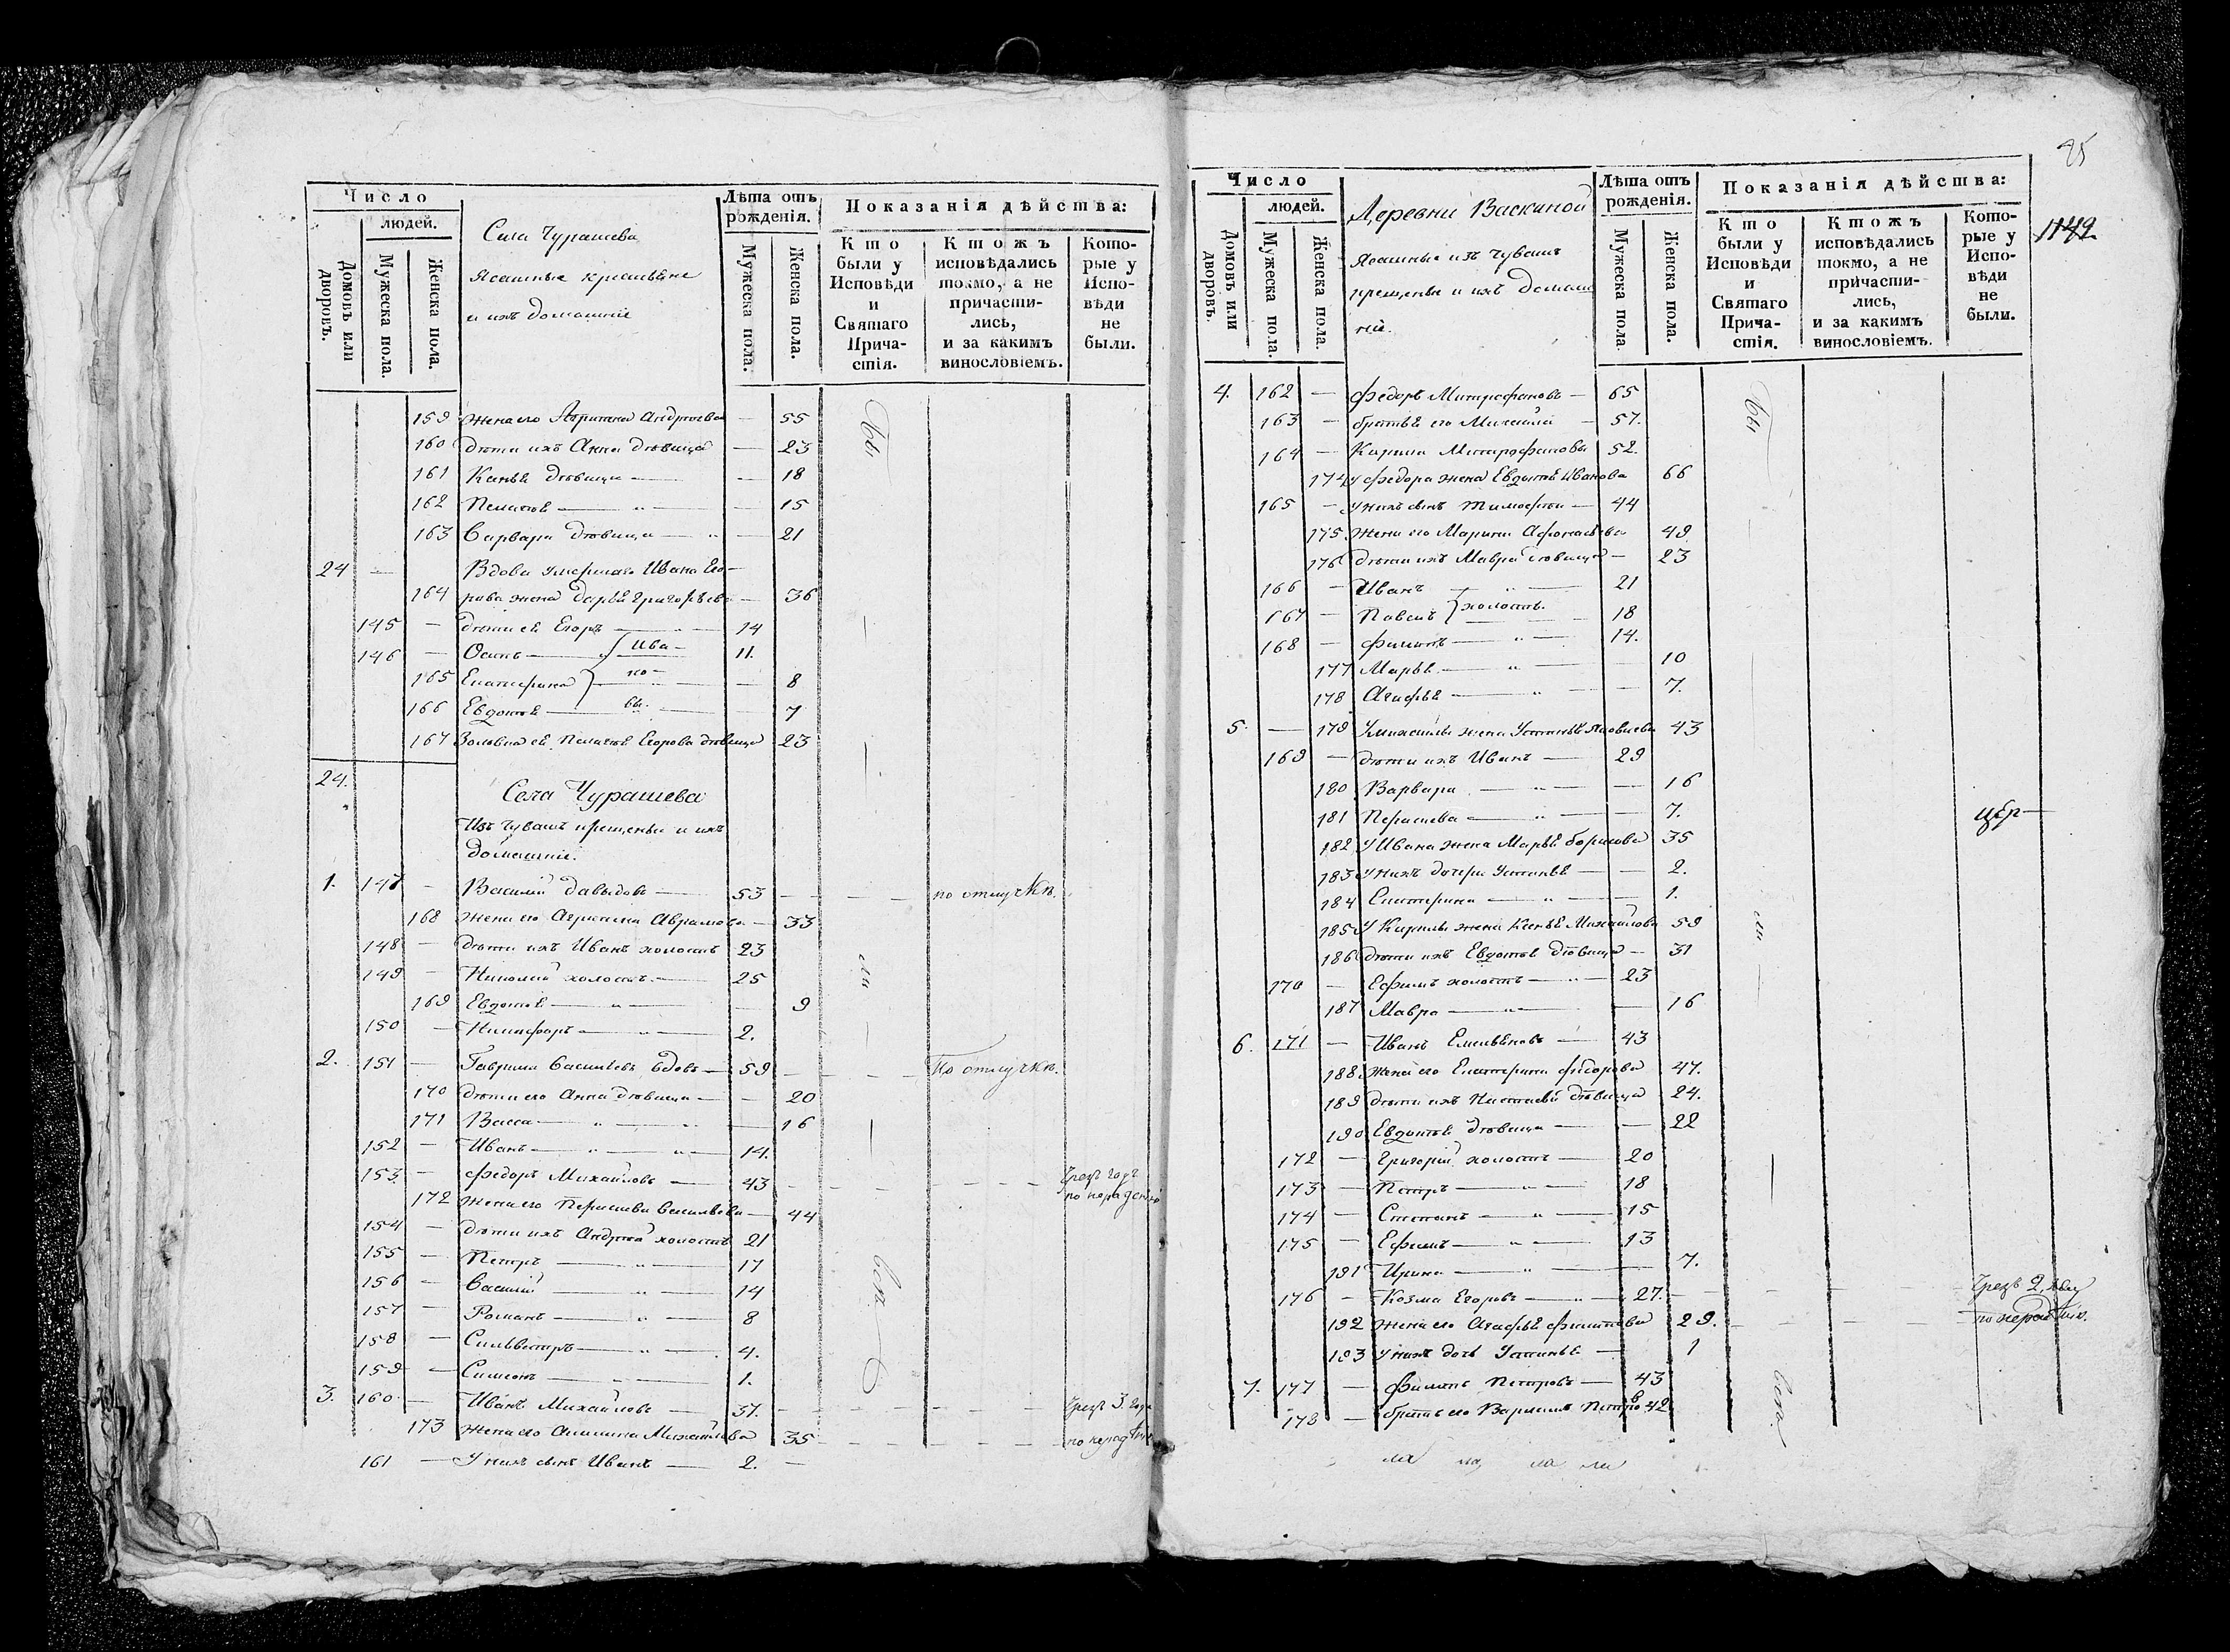 Число
людей.
Домовъ или дворовъ.
Мужеска пола.
Женска пола.
Села Чурашева
Ясашные крестьяне
и ихъ домашніе
Лѣта отъ рожденія.
Мужеска пола.
Женска пола.
Показанія дѣйства:
Кто были у Исповѣди и Святаго Причастія.
Ктожъ исповѣдались токмо, а не причастились, и за какимъ винословіемъ.
Которые у Исповѣди не были.
159 жена его Агрипина Андреева — 55
160 дѣти ихъ Анна дѣвица — 23
161 дѣвица — 18
162 Пелагея — 15
163 Варвара дѣвица — 21
24 — Вдова умершаго Ивана Его-
164 рова жена Дарья Григорьева — 36
145 — дѣти ея Егоръ — 14
146 — Осипъ — Ива- 11.
165 Екатерина — но- — 8
166 Евдотья — вы. — 7
167 Золовка ея Пелагея Егорова дѣвица 23
24.
Села Чурашева
Изъ чувашъ крещеные и ихъ
домашніе.
1. 147 — Василій Давыдовъ — 53 — по отлучкѣ.
168 жена его Агрипина Аврамова — 33
148 — дѣти ихъ Иванъ холостъ 23
149 — Николай холостъ — 25
169 Евдотья — 9
150 — Никифоръ — 2.
2. 151 — Гаврила Васильевъ вдовъ — 59 — По отлучкѣ.
170 дѣти его Анна дѣвица — 20
171 Васса — 16
152 — Иванъ — 14.
153. — Федоръ Михайловъ — 43 — Чрезъ годъ по нерадѣнію
172 жена его Парасева Васильева — 44
154 — дѣти ихъ Андрей холостъ 21
155 — Петръ — 17
156 — Василій — 14
157 — Романъ — 8
158 — Сильвестръ — 4.
159 — Симеонъ — 1.
3. 160 — Иванъ Михайловъ — 37. — Чрезъ 3. года
173 жена его Михайлова 35 — по нерадѣнію
161 — У нихъ сынъ Иванъ — 2. —
Бы
ли
всѣ
95
1149.
Число
людей.
Домовъ или дворовъ.
Мужеска пола.
Женска пола.
Деревни Васкиной
Ясашные изъ чувашъ
крещеные и ихъ домаш
ніе.
Лѣта отъ рожденія.
Мужеска пола.
Женска пола.
Показанія дѣйства:
Кто были у Исповѣди и Святаго Причастія.
Ктожъ исповѣдались токмо, а не причастились, и за какимъ винословіемъ.
Которые у Исповѣди не были.
4. 162 — Федоръ Митрофановъ — 65
163 — братья его Михайла — 57.
164 — Кирила Митрофановы 52.
174 у Федора жена Евдотья Иванова 66
165 — у нихъ сынъ Тимофей — 44
175. жена его Марина Афонасьева 49
176 дѣти ихъ Мавра дѣвица — 23
166 — Иванъ — 21
167 — Павелъ холосты. — 18
168 — Филипъ — 14.
177 Марья — 10
178 Агафья — 7.
5. — 179 У Михайлы жена Устинья Яковлева 43
169 — дѣти ихъ Иванъ — 29
180 Варвара — 16
181 Парасева — 7.
182 У Ивана жена Марья Борисова 35
183 у нихъ дочери Устинья — 2.
184 Екатерина — 1.
185 У Кирилы жена Ксенья Михайлова 59
186 дѣти ихъ Евдотья дѣвица — 31
170 — Ефимъ холостъ — 23
187 Мавра — 16
6. 171 — Иванъ Емельяновъ — 43
188. жена его Екатерина Федорова 47.
189 дѣти ихъ Настасья дѣвица 24.
190 Евдотья дѣвица — 22
172 — Григорій холостъ — 20
173 — Петръ — 18
174 — Степанъ — 15
175 — Ефимъ — 13
191 Ирина — 7.
176 — Козма Егоровъ — 27. — Чрезъ 2,
192 жена его Агафья Филипова 29. — по нерадѣнію.
193 у нихъ дочь Устинья — 1
7. 177 — Филипъ Петровъ — 43
178 — братъ его Варламъ Петровъ 42
Бы
ли
всѣ